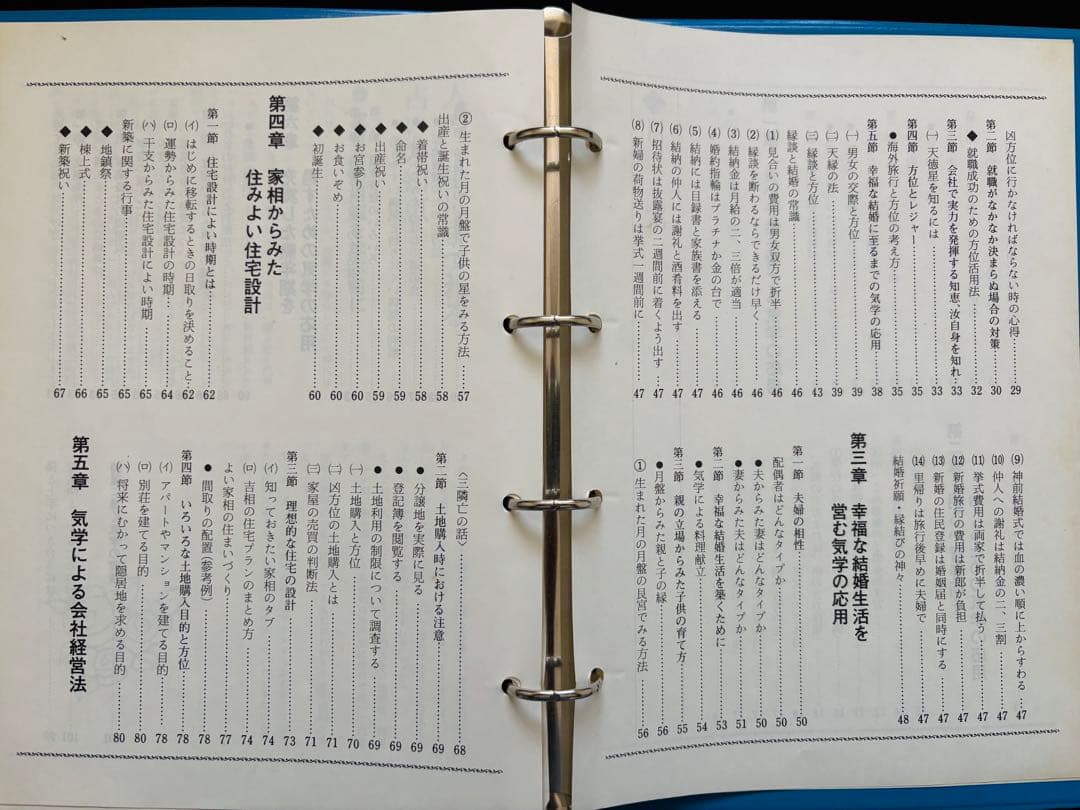 凶方位に行かなければならない時の心得……29
第二節 就職がなかなか決まらぬ場合の対策……30
◆就職成功のための方位活用法……32
第三節 会社で実力を発揮する知恵、汝自身を知れ…33
㈠天徳星を知るには……33
第四節 方位とレジャー……35
●海外旅行と方位の考え方……35
第五節 幸福な結婚に至るまでの気学の応用……38
㈠男女の交際と方位……39
㈡天縁の法……39
㈢縁談と方位……43
縁談と結婚の常識……46
⑴見合いの費用は男女双方で折半……46
⑵縁談を断わるならできるだけ早く……46
⑶結納金は月給の二、三倍が適当……46
⑷婚約指輪はプラチナか金の台で……46
⑸結納には目録書と家族書を添える……47
⑹結納の仲人には謝礼と酒肴料を出す……47
⑺招待状は披露宴の二週間前に着くよう出す……47
⑻新婦の荷物送りは挙式一週間前に……47
⑼神前結婚式では血の濃い順に上からすわる……47
⑽仲人への謝礼は結納金の二、三割……47
⑾挙式費用は両家で折半して払う……47
⑿新婚旅行の費用は新郎が負担……47
⒀新婚の住民登録は婚姻届と同時にする……47
⒁里帰りは旅行後早めに夫婦で……47
結婚祈願・縁結びの神々……48
第三章 幸福な結婚生活を
営む気学の応用
第一節 夫婦の相性……50
配偶者はどんなタイプか……50
●夫からみた妻はどんなタイプか……50
●妻からみた夫はどんなタイプか……51
第二節 幸福な結婚生活を築くために……53
●気学による料理献立……54
第三節 親の立場からみた子供の育て方……55
●月盤からみた親と子の縁……56
①生まれた月の月盤の艮宮でみる方法……56
②生まれた月の月盤で子供の星をみる方法……57
出産と誕生祝いの常識……58
◆着帯祝い……58
◆命名……59
◆出産祝い……59
◆お宮参り……60
◆お食いぞめ……60
◆初誕生……60
第四章 家相からみた
住みよい住宅設計
第一節 住宅設計によい時期とは……62
㈑はじめに移転するときの日取りを決めること…62
㈺運勢からみた住宅設計の時期……64
(ハ)干支からみた住宅設計によい時期……65
新築に関する行事……65
◆地鎮祭……65
◆棟上式……66
◆新築祝い……67
〈三隣亡の話〉……68
第二節 土地購入時における注意……69
●分譲地を実際に見る……69
●登記簿を閲覧する……69
●土地利用の制限について調査する……69
㈠土地購入と方位……70
㈡凶方位の土地購入とは……71
㈢家屋の売買の判断法……71
第三節 理想的な住宅の設計……73
(イ)知っておきたい家相のタブー……74
(ロ)吉相の住宅プランのまとめ方……74
よい家相の住まいづくり……77
●間取りの配置(参考例)……78
第四節 いろいろな土地購入目的と方位……78
(イ)アパートやマンションを建てる目的……78
(ロ)別荘を建てる目的……80
(ハ)将来にむかって隠居地を求める目的……80
第五章 気学による会社経営法